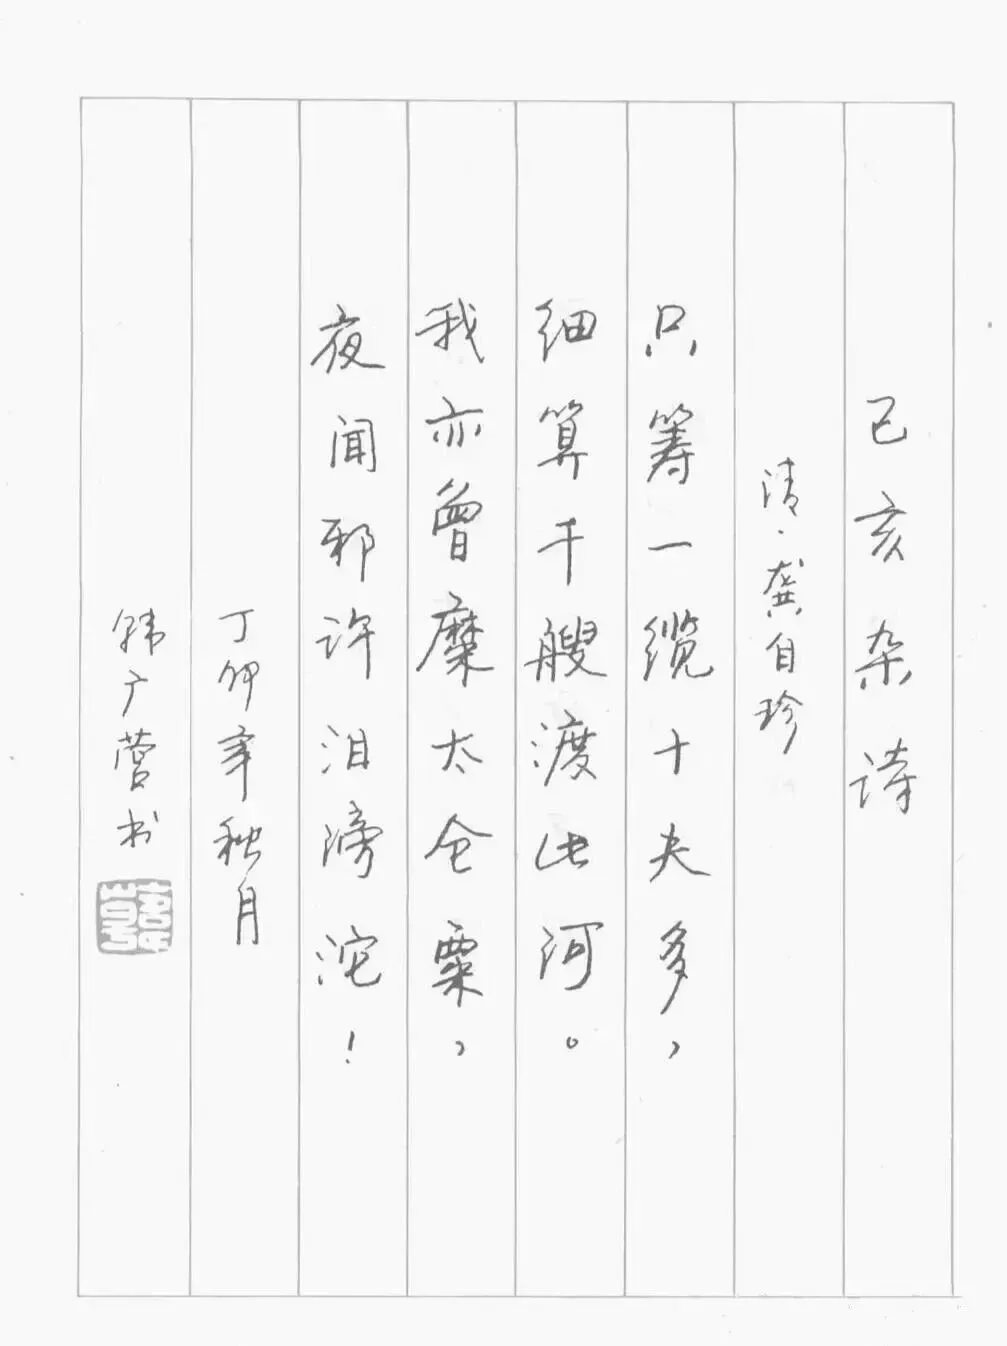 己亥杂诗
清·龚自珍
只筹一缆十夫多，
细算千艘渡此河。
我亦曾糜太仓粟，
夜闻邪许泪滂沱！
丁卯年秋月
韩广营书